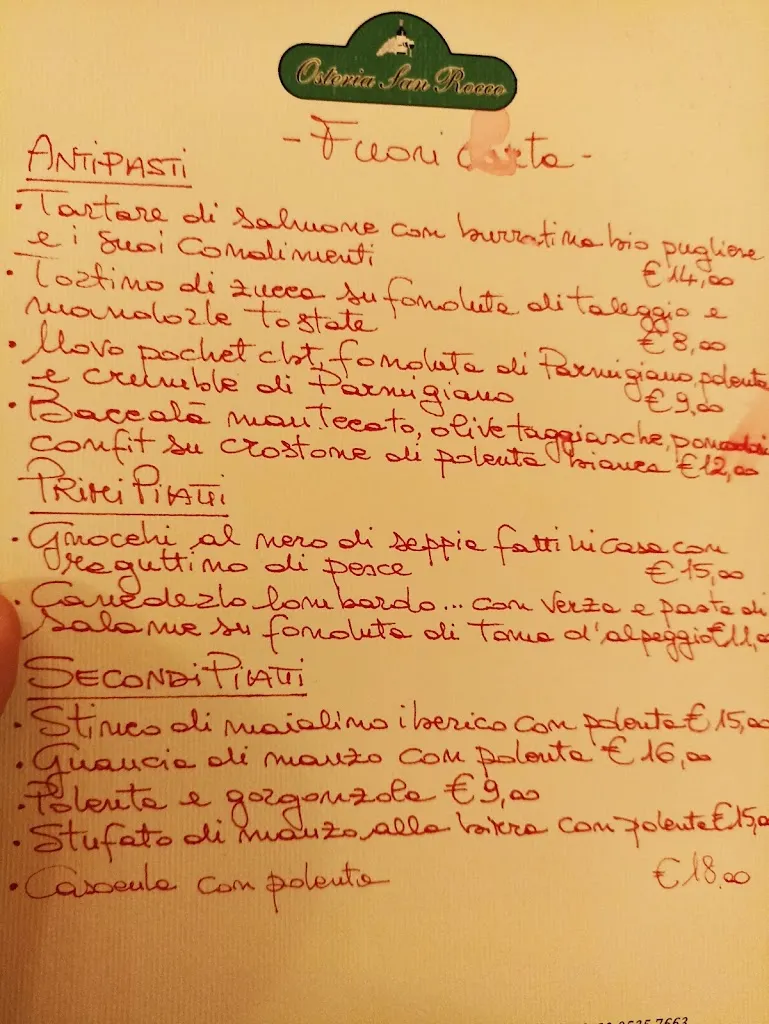 Osteria San Rocco
- Fuori carta -
ANTIPASTI
• Tartare di salmone con burratina bio pugliese
e i suoi condimenti € 14,00
• Tortino di zucca su fonduta di taleggio e
mandorle tostate € 8,00
• Uovo pochet cbt, fonduta di Parmigiano, polenta
e crumble di Parmigiano € 9,00
• Baccalà mantecato, olive taggiasche, pomodori
confit su crostone di polenta bianca € 12,00
PRIMI PIATTI
• Gnocchi al nero di seppia fatti in casa con
raguttino di pesce € 15,00
• Canederlo lombardo... con verza e pasta di
salame su fonduta di Toma d'alpeggio € 11,0
SECONDI PIATTI
• Stinco di maialino iberico con polenta € 15,00
• Guancia di manzo con polenta € 16,00
• Polenta e gorgonzola € 9,00
• Stufato di manzo alla birra con polenta € 15,0
• Casoeula con polenta € 18,00